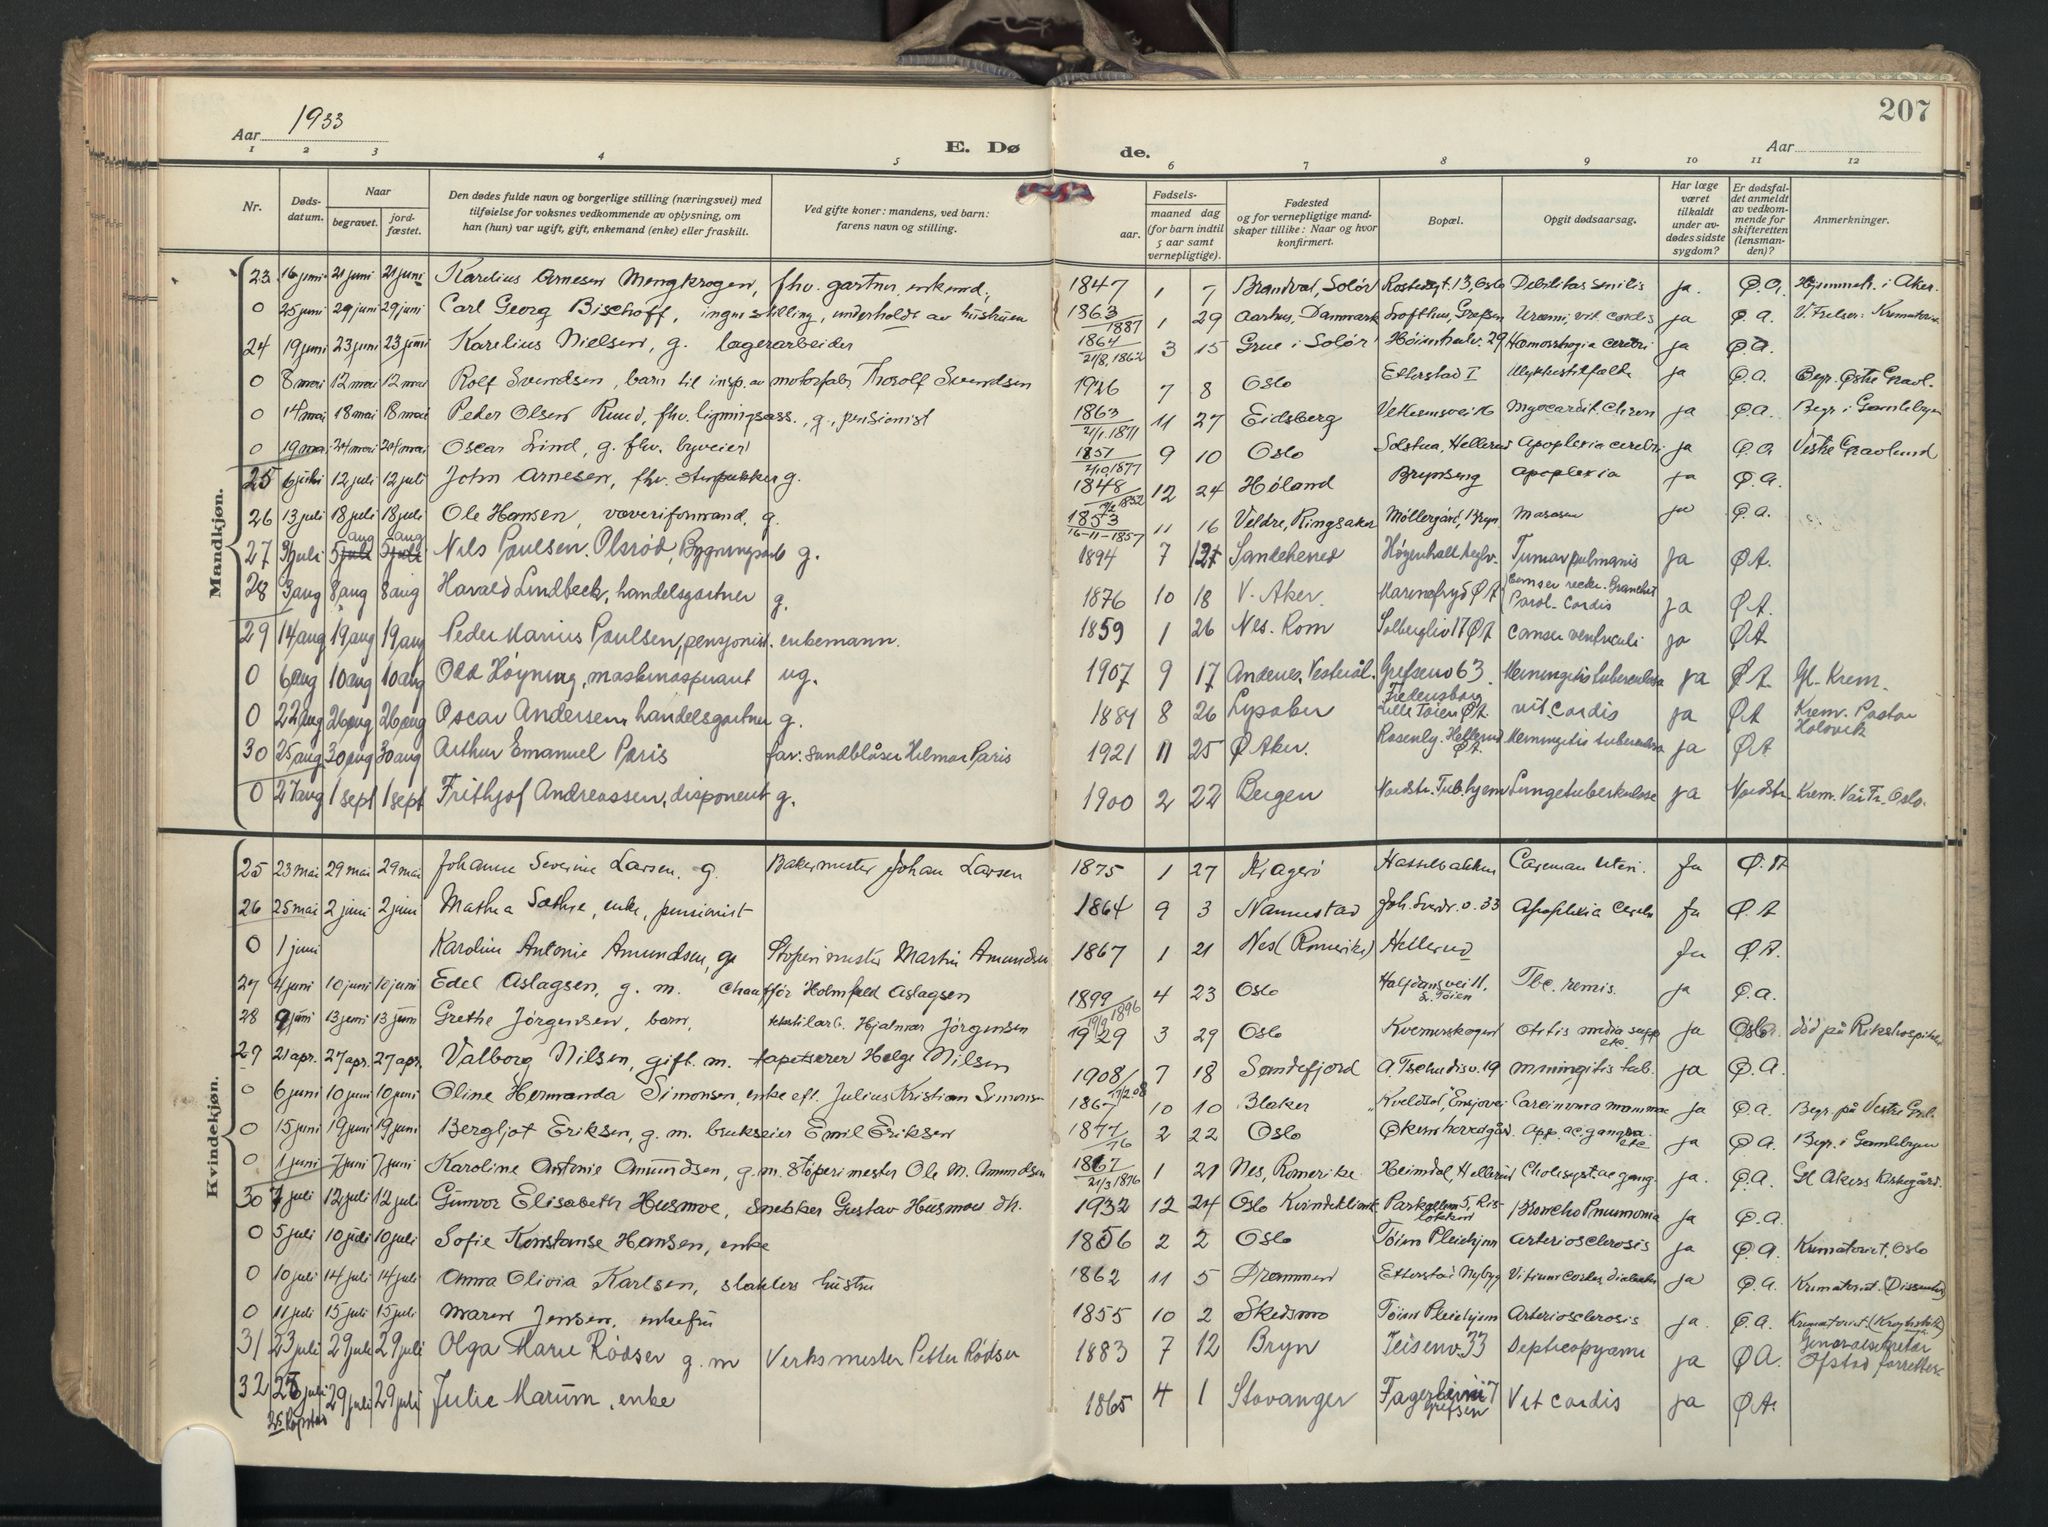 207
Aar 1933
E. Døde.
Aar
1 2 3 4 5 6 7 8 9 10 11 12
Nr.
Døds-datum.
Naar
begravet.
jord-fæstet.
Den dødes fulde navn og borgerlige stilling (næringsvei) med
tilføielse for voksnes vedkommende av oplysning, om
han (hun) var ugift, gift, enkemand (enke) eller fraskilt.
Ved gifte koner: mandens, ved barn:
farens navn og stilling.
Fødsels-
aar. maaned dag
(for barn indtil
5 aar samt
vernepligtige).
Fødested
og for vernepligtige mand-
skaper tillike: Naar og hvor
konfirmert.
Bopæl.
Opgit dødsaarsag.
Har læge
været
tilkaldt
under av-
dødes sidste
sygdom?
Er dødsfal-
det anmeldt
av vedkom-
mende for
skifteretten
(lensman-
den)?
Anmerkninger.
Mandkjøn.
23 16 juni 21 juni 21 juni Karelius Arnesen Mengkrogen, fhv. gartner, enkemd., 1847 1 7 Brandval, Solør 13, Oslo Debilitas senilis ja. Ø.A. i Aker.
0 25 juni 29 juni 29 juni Carl Georg Bischoff, ingen stilling, underholdt av hustruen 1863/1887 1 29 Aarhus, Danmark Lofthus, Grefsen Uræmi, vit. cordis ja Ø.A.
24 19 juni 23 juni 23 juni Karelius Nielsen, g. lagerarbeider 1864 21/8, 1862 3 15 Grue i Solør 29 Hæmorrhagia cerebri ja Ø.A.
0 8 mai 12 mai 12 mai Rolf Svendsen, barn til insp. av motorfabr Thorolf Svendsen 1926 7 8 Oslo Etterstad I Ulykkestilfælde ja Ø.A. Begr. Østre Gravl.
0 14 mai 18 mai 18 mai Peder Olsen Ruud, fhv. ligningsass., g., pensionist 1863 21/1 1871 11 27 Eidsberg Vetlemsvei 16 Myocardit. chron ja Ø.A. Begr. i Gamlebyen
0 19 mai 24 mai 24 mai Oscar Lind, g. fhv. byveier 1857 2/10 1877 9 10 Oslo Solstua, Hellerud Apoplexia cerebri ja Ø.A. Vestre Gravlund
25 6 juli 12 juli 12 juli John Arnesen, fhv. stenpukker g. 1848 1852 12 24 Høland Brynseng Apoplexia ja Ø.A.
26 13 juli 18 juli 18 juli Ole Hansen, væveriformand, g. 1853 16-11-1857 11 16 Veldre, Ringsaker Møllergård, Bryn ja Ø.A.
27 juli 5 aug 5 aug Nils Paulsen Olsrød, Bygningsarb g. 1894 7 Sandeherred Tumor pulmonis ja Ø.A.
28 3 aug 8 aug 8 aug Harald Lindbeck, handelsgartner g. 1876 10 18 V. Aker. Marienfryd Ø.A. Paral. cordis ja Ø.A.
29 14 aug 19 aug 19 aug Peder Marius Paulsen, pensjonist. enkemann. 1859 1 26 Nes. Rom Solbergliv 17 Ø.A. Canser ventriculi ja Ø.A.
0 6 aug 10 aug 10 aug Odd Høyning, maskinaspirant ug. 1907 9 17 Andenes, Vesterål. Grefsenv 63. Meningitis tuberculosa ja Ø.A. Gl. Krem.
0 22 aug 26 aug 26 aug Oscar Andersen, handelsgartner g. 1881 8 26 Lysaker Fredensborg Lille Tøien Ø.A. vit. cordis ja Ø.A. Krem. Pastor Holovik
30 25 aug 30 aug 30 aug Arthur Emanuel Paris far: sandblåser Hilmar Paris 1921 11 25 Ø. Aker. Rosenly, Hellerud Ø.A. Meningitis tuberculosa ja Ø.A.
0 27 aug 1 sept 1 sept Frithjof Andreassen, disponent g. 1900 2 22 Bergen Nordstr. Tub.hjem Lungetuberkulose ja Nordstr. Krem. Vår Fr. Oslo.
Kvindekjøn.
25 23 mai 29 mai 29 mai Johanne Severine Larsen, g. Bakermester Johan Larsen 1875 1 27 Kragerø Hasselbakken uteri. ja Ø.A.
26 25 mai 2 juni 2 juni Mathea Sæthre, enke, pensionist 1864 9 3 Nannestad Joh. Sverdr. v. 33 Apoplexia cerebri ja Ø.A.
0 1 juni Karoline Antonie Amundsen, g. Støperimester Martin Amundsen 1867 1 21 Nes (Romerike) Hellerud ja Ø.A.
27 4 juni 10 juni 10 juni Edel Aslagsen, g. m. chauffør Holmfeld Aslagsen 1899 1896 4 23 Oslo Halfdansvei 11, L. Tøien Tbc. renis. ja Ø.A.
28 9 juni 13 juni 13 juni Grethe Jørgensen, barn, tekstilarb. Hjalmar Jørgensen 1929 3 29 Oslo Kværnerskogen Otitis media supp etc. ja Oslo. død på Rikshospitalet
29 21 apr. 27 apr. 27 apr. Valborg Nilsen, gift. m. tapetserer Helge Nilsen 1908 7 18 Sandefjord A. Tschudisv. 19 Meningitis tub. ja Ø.A.
0 6 juni 10 juni 10 juni Oline Hermanda Simonsen, enke eft. Julius Kristian Simonsen 1867 10 10 Blaker "Kveldsol", Ensjøvei Carcinoma mammae ja Ø.A. Begr. på Vestre Grl.
0 15 juni 19 juni 19 juni Bergljot Eriksen, g. m. brukseier Emil Eriksen 1877/76 2 22 Oslo Økern hovedgård. App. ac. gangræ. etc ja Ø.A. Begr. i Gamlebyen
0 1 juni 7 juni 7 juni Karoline Antonie Amundsen, g. m. støperimester Ole M. Amundsen 1867 21/3 1876 1 21 Nes, Romerike Heimdal, Hellerud Cholecyst. ac. gang. ja. Ø.A. Gl. Akers Kirkegård.
30 7 juli 12 juli 12 juli Gunvor Elisabeth Husmoe, snekker Gustav Husmoes dtr. 1932 12 24 Oslo Kvindeklinik Broncho Pneumonia ja Ø.A.
0 5 juli 10 juli 10 juli Sofie Konstanse Hansen, enke 1856 2 2 Oslo Tøien Pleiehjem Arteriosclerosis ja Ø.A. Krematoriet, Oslo
0 10 juli 14 juli 14 juli Anna Olivia Karlsen, slakters hustru 1862 11 5 Drammen Etterstad Nybyg Vitium cordis, diabetes ja Ø.A. Krematoriet. (Dissenter)
0 11 juli 15 juli 15 juli Maren Jensen, enkefru 1855 10 2 Skedsmo Tøien Pleiehjem Arteriosclerosis ja. Ø.A. Krematoriet.
31 23 juli 29 juli 29 juli Olga Marie Rødser g. m Verksmester Petter Rødser 1883 7 12 Bryn Teisenv. 33 Septicopyæmi ja Ø.A. Generalsekretær Ofstad forrettet.
32 25 juli 29 juli 29 juli Julie Marum, enke 1865 4 1 Stavanger Fagerheimv 7 Grefsen Vit cordis ja Ø.A.